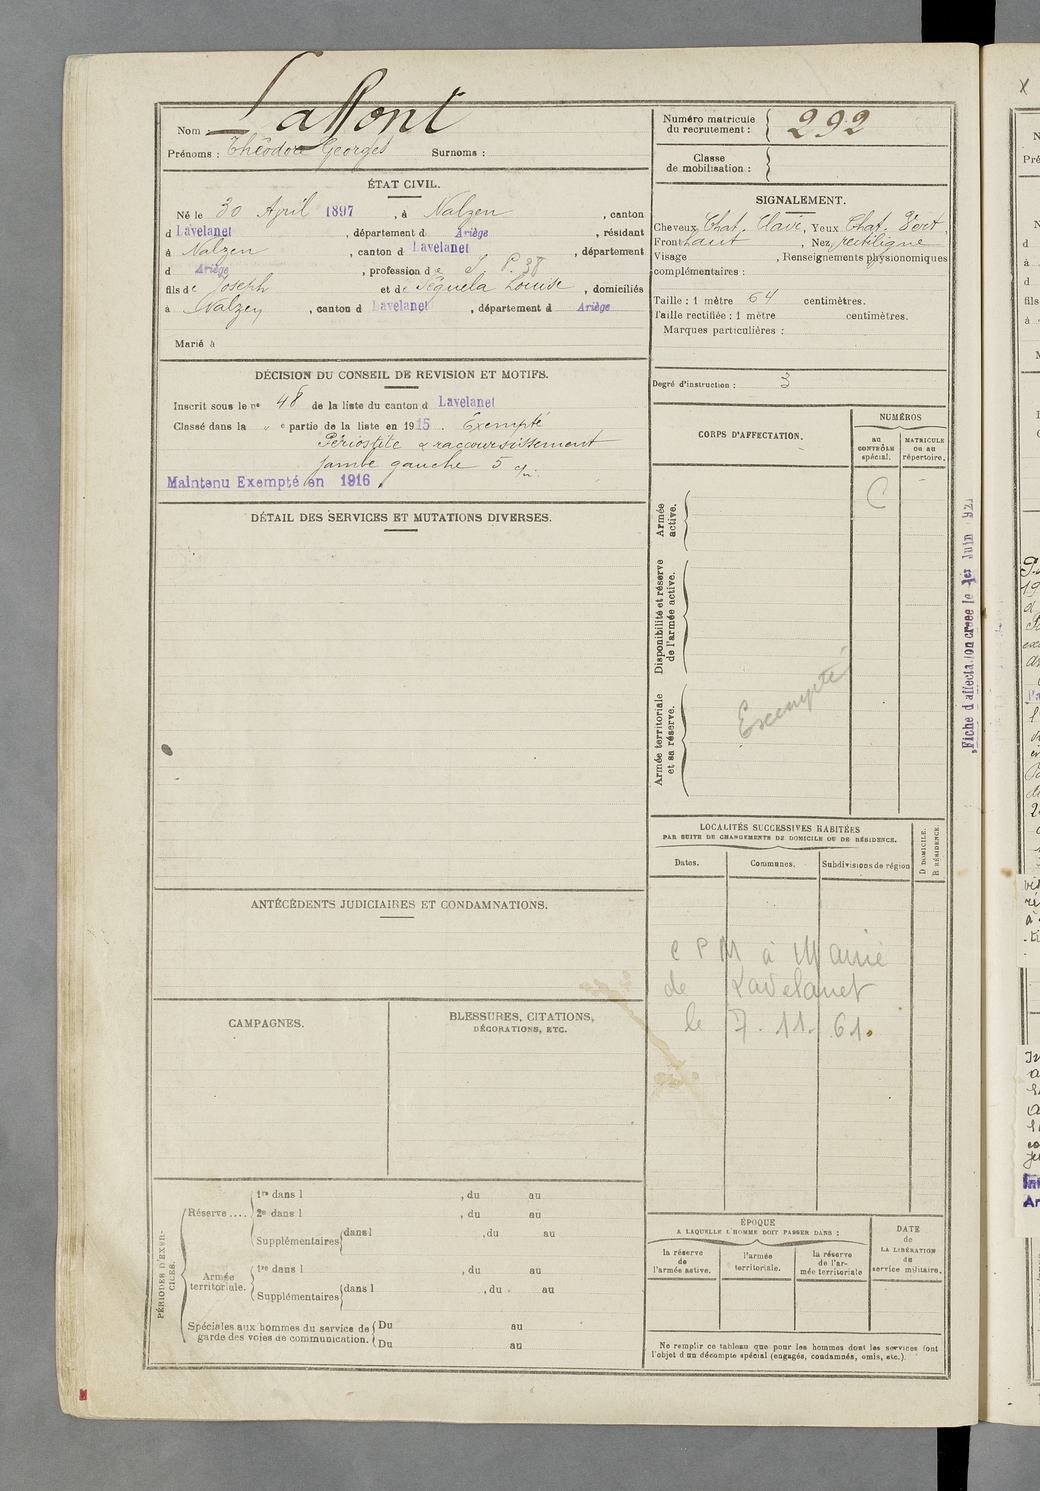 Nom : Laffont
Prénoms : Théodore Georges Surnoms :
Numéro matricule du recrutement : 292
Classe de mobilisation :
ÉTAT CIVIL.
Né le 30 April 1897, à Nalzen, canton
d Lavelanet, département d Ariège, résidant
à Nalzen, canton d Lavelanet, département
d Ariège, profession de S. P. 38
fils de Joseph et de Séguéla Louise, domiciliés
à Nalzen, canton d Lavelanet, département d Ariège
Marié à
SIGNALEMENT.
Cheveux Chat. Clair, Yeux Chat. Vert,
Front haut, Nez rectiligne
Visage , Renseignements physionomiques
complémentaires :
Taille : 1 mètre 64 centimètres.
Taille rectifiée : 1 mètre centimètres.
Marques particulières :
Degré d'instruction : 3
DÉCISION DU CONSEIL DE REVISION ET MOTIFS.
Inscrit sous le nº 48 de la liste du canton d Lavelanet
Classé dans la " e partie de la liste en 1915. Exempté
Périostite & raccourcissement
jambe gauche 5 c/m.
Maintenu Exempté en 1916.
DÉTAIL DES SERVICES ET MUTATIONS DIVERSES.
CORPS D'AFFECTATION.
NUMÉROS
au CONTRÔLE spécial.
MATRICULE ou au répertoire.
C
Armée active.
Disponibilité et réserve de l'armée active.
Armée territoriale et sa réserve.
Exempté
Fiche d'affectation créée le 1er Juin 192
LOCALITÉS SUCCESSIVES HABITÉES
PAR SUITE DE CHANGEMENTS DE DOMICILE OU DE RÉSIDENCE.
Dates. Communes. Subdivisions de région
D DOMICILE. R RÉSIDENCE.
C P M à Mairie
de Lavelanet
le 7.11.61.
ANTÉCÉDENTS JUDICIAIRES ET CONDAMNATIONS.
CAMPAGNES.
BLESSURES, CITATIONS,
DÉCORATIONS, ETC.
PÉRIODES D'EXERCICES.
Réserve.... 1re dans l , du au
2e dans l , du au
Supplémentaires dans l , du au
Armée territoriale. 1re dans l , du au
Supplémentaires dans l , du au
Spéciales aux hommes du service de garde des voies de communication. Du au
Du au
ÉPOQUE
A LAQUELLE L'HOMME DOIT PASSER DANS :
la réserve de l'armée active.
l'armée territoriale.
la réserve de l'armée territoriale
DATE de LA LIBÉRATION du service militaire.
Ne remplir ce tableau que pour les hommes dont les services font
l'objet d'un décompte spécial (engagés, condamnés, omis, etc.).